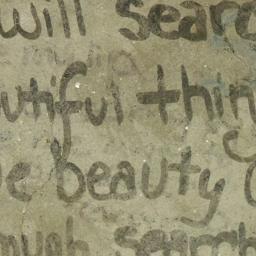 will searc
utiful thin
e beauty
ough search